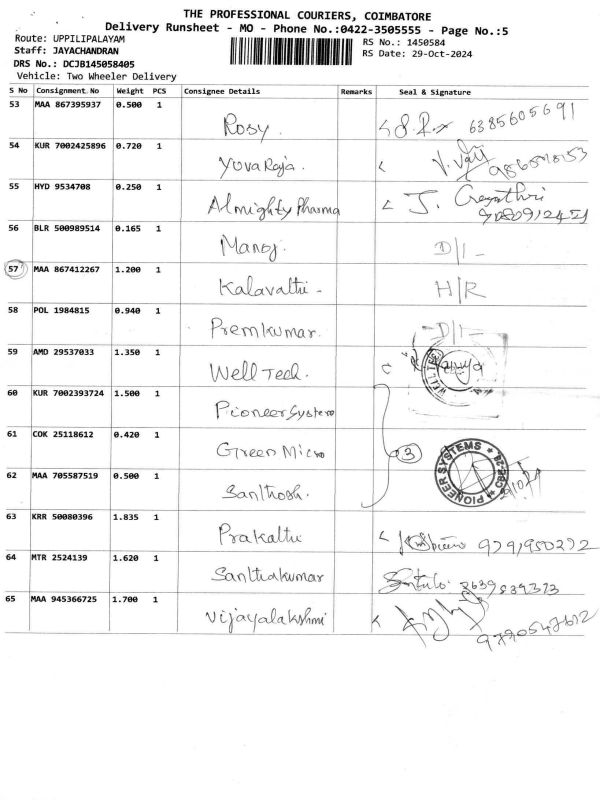 THE PROFESSIONAL COURIERS, COIMBATORE
Delivery Runsheet - MO - Phone No.:0422-3505555 - Page No.:5
Route: UPPILIPALAYAM
RS No.: 1450584
Staff: JAYACHANDRAN
RS Date: 29-Oct-2024
DRS No.: DCJB145058405
Vehicle: Two Wheeler Delivery
S No Consignment No Weight PCS Consignee Details Remarks Seal & Signature
53 MAA 867395937 0.500 1 Rosy. 6385605691
54 KUR 7002425896 0.720 1 YuvaRaja.
55 HYD 9534708 0.250 1 Almighty Pharma J. Gayathri
56 BLR 500989514 0.165 1 Manoj. D/L
57 MAA 867412267 1.200 1 Kalavathi - H/R
58 POL 1984815 0.940 1 Premkumar. D/L
59 AMD 29537033 1.350 1 Well Tech.
60 KUR 7002393724 1.500 1 Pioneer System
61 COK 25118612 0.420 1 Green Micro 3
PIONEER SYSTEMS CBE-28
62 MAA 705587519 0.500 1 Santhosh.
63 KRR 50080396 1.835 1 Prakathi
64 MTR 2524139 1.620 1 Santhakumar
65 MAA 945366725 1.700 1 Vijayalakshmi